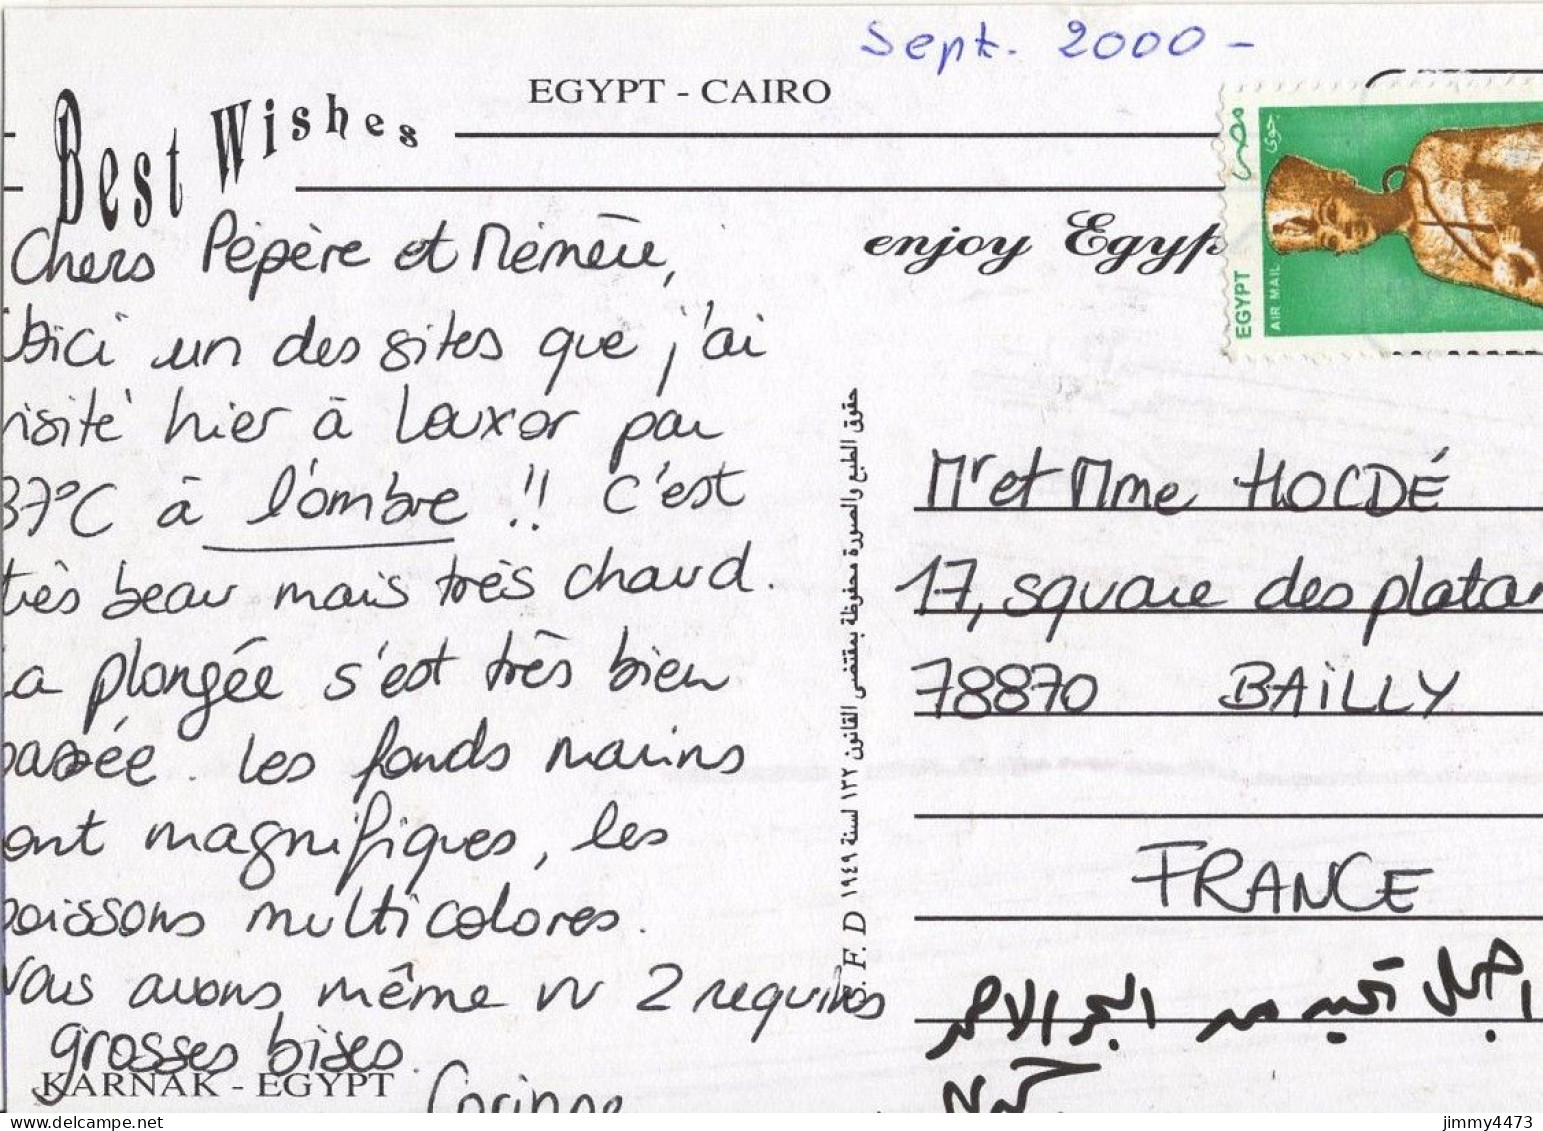 Sept. 2000 -
EGYPT - CAIRO
Best Wishes
enjoy Egyp
مصر
جوى
EGYPT
AIR MAIL
Chers Pépère et Mémère,
Voici un des sites que j'ai
visité hier à Louxor par
37°C à l'ombre !! C'est
très beau mais très chaud.
La plongée s'est très bien
passée. Les fonds marins
sont magnifiques, les
poissons multicolores.
Nous avons même vu 2 requins
grosses bises.
Corinne
KARNAK - EGYPT
حقوق الطبع والصورة محفوظة بمقتضى القانون ١٣٢ لسنة ١٩٤٩
F. D
Mr et Mme HOCDÉ
17, square des platan
78870 BAILLY
FRANCE
اجمل تحية من البحر الاحمر
jimmy4473
www.delcampe.net